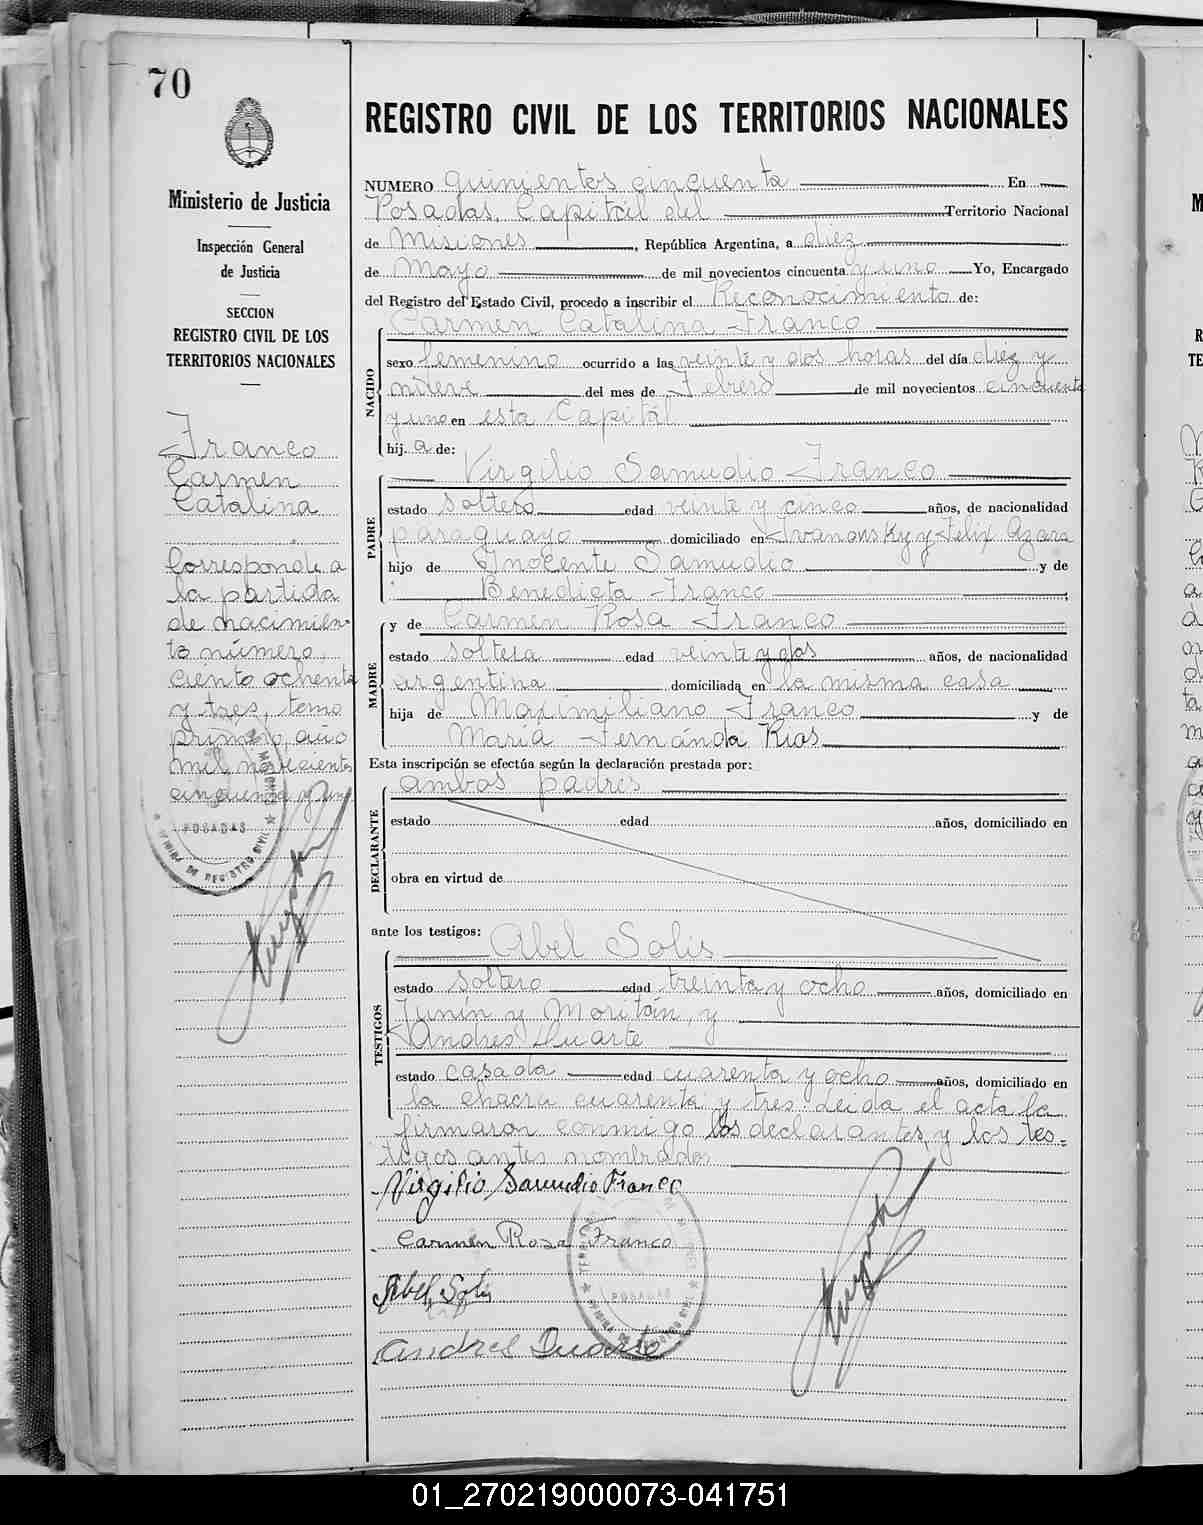 70
Ministerio de Justicia
Inspección General
de Justicia
SECCION
REGISTRO CIVIL DE LOS
TERRITORIOS NACIONALES
Franco
Carmen
Catalina
Corresponde a
la partida
de nacimien-
to número
ciento ochenta
y tres, tomo
primero, año
mil novecientos
cincuenta y uno
POSADAS
OFICINA DE REGISTRO CIVIL
REGISTRO CIVIL DE LOS TERRITORIOS NACIONALES
NUMERO quinientos cincuenta En
Posadas, Capital del Territorio Nacional
de Misiones, República Argentina, a diez
de Mayo de mil novecientos cincuenta y uno Yo, Encargado
del Registro del Estado Civil, procedo a inscribir el Reconocimiento de:
NACIDO
Carmen Catalina Franco
sexo femenino ocurrido a las veinte y dos horas del día diez y
nueve del mes de Febrero de mil novecientos cincuenta
y uno en esta Capital
hij a de:
PADRE
Virgilio Samudio Franco
estado soltero edad veinte y cinco años, de nacionalidad
paraguayo domiciliado en Ivanowsky y Felix Azara
hijo de Inocente Samudio y de
Benedicta Franco
MADRE
y de Carmen Rosa Franco
estado soltera edad veinte y dos años, de nacionalidad
argentina domiciliada en la misma casa
hija de Maximiliano Franco y de
María Fernánda Rios
Esta inscripción se efectúa según la declaración prestada por:
DECLARANTE
ambos padres
estado edad años, domiciliado en
obra en virtud de
ante los testigos:
TESTIGOS
Abel Solis
estado soltero edad treinta y ocho años, domiciliado en
Junín y Moritán, y
Andres Duarte
estado casada edad cuarenta y ocho años, domiciliado en
la chacra cuarenta y tres. Leida el acta la
firmaron conmigo los declarantes, y los tes-
tigos antes nombrados
Virgilio Samudio Franco
Carmen Rosa Franco
Abel Solis
Andres Duarte
POSADAS
01_270219000073-041751